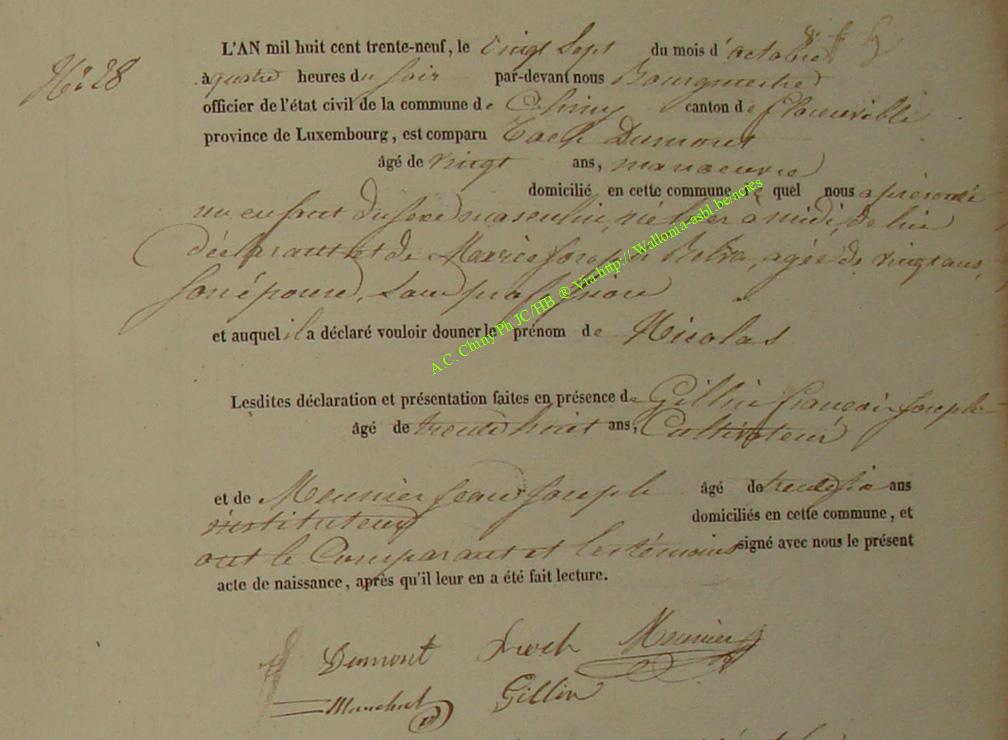 N° 28
L'AN mil huit cent trente-neuf, le vingt Sept du mois d'octobre
à quatre heures du soir par-devant nous Bourgmestre
officier de l'état civil de la commune de Chiny canton de florenville
province de Luxembourg, est comparu Roch Dumont
âgé de vingt ans, manoeuvre
domicilié en cette commune le quel nous a présenté
un enfant du sexe masculin, né hier à midi, de lui
déclarant et de Marie Joseph, agée de vingt ans,
son épouse, sans profession
et auquel il a déclaré vouloir donner le prénom de Nicolas
Lesdites déclaration et présentation faites en présence de Gillin françois Joseph
âgé de trente huit ans, Cultivateur
et de Meunier Jean Joseph âgé de trente six ans
instituteur domiciliés en cette commune, et
ont le Comparant et les témoins signé avec nous le présent
acte de naissance, après qu'il leur en a été fait lecture.
Dumont Roch Meunier
Gillin
A.C. Chiny Ph JC/HB ® Via http:// Wallonia-asbl.be/actes